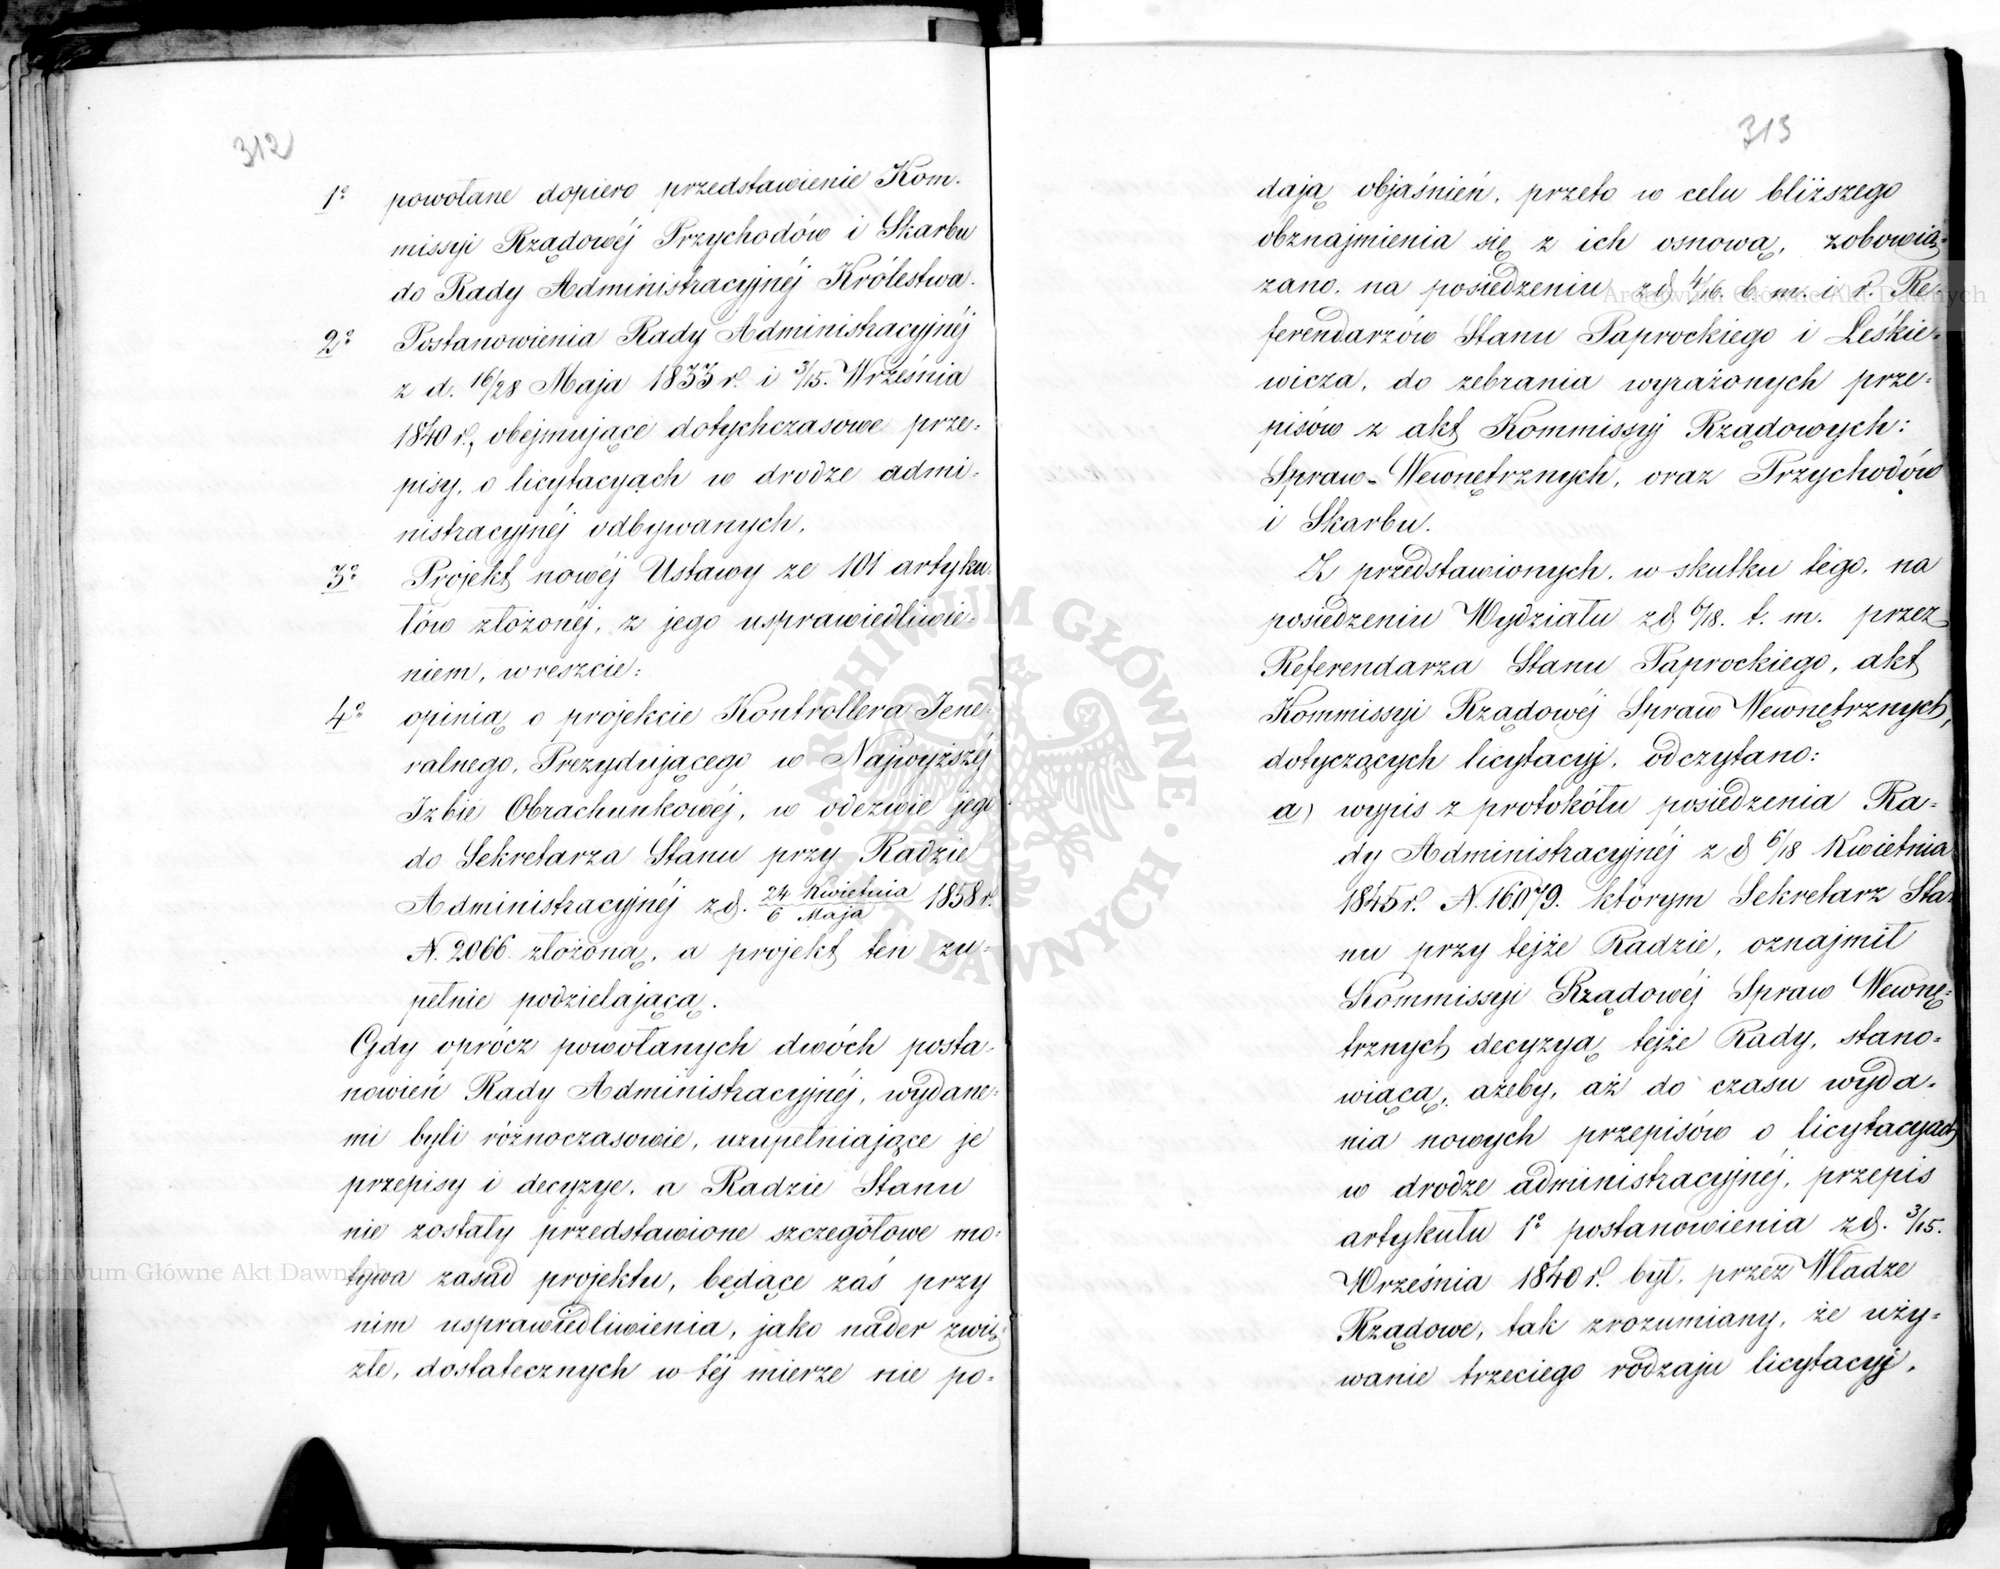 312
1° powołane dopiero przedstawienie Kom-
missyi Rządowéj Przychodów i Skarbu
do Rady Administracyjnéj Królestwa.
2° Postanowienia Rady Administracyjnéj
z d. 16/28 Maja 1833 r. i 3/15. Września
1840 r., obejmujące dotychczasowe prze-
pisy, o licytacyach w drodze admi-
nistracyjnéj odbywanych,
3° Projekt nowéj Ustawy ze 101 artyku-
łów złożonéj, z jego usprawiedliwie-
niem, wreszcie:
4° opinią o projekcie Kontrollera Jene-
ralnego, Prezydującego w Najwyższéj
Izbie Obrachunkowéj, w odezwie jego
do Sekretarza Stanu przy Radzie
Administracyjnéj z d. 24 Kwietnia / 6 Maja 1858 r.
N. 2066 złożoną, a projekt ten zu-
pełnie podzielającą.
Gdy oprócz powołanych dwóch posta-
nowień Rady Administracyjnéj, wydane-
mi byli różnoczasowie, uzupełniające je
przepisy i decyzye, a Radzie Stanu
nie zostały przedstawione szczegółowe mo-
tywa zasad projektu, będące zaś przy
nim usprawiedliwienia, jako nader zwię-
złe, dostatecznych w téj mierze nie po-
313
dają objaśnień, przeto w celu bliższego
obznajmienia się z ich osnową, zobowią-
zano, na posiedzeniu z d. 4/16. b. m. i r. Re-
ferendarzów Stanu Paprockiego i Leśkie-
wicza, do zebrania wyrażonych prze-
pisów z akt Kommissyj Rządowych:
Spraw-Wewnętrznych, oraz Przychodów
i Skarbu.
Z przedstawionych, w skutku tego, na
posiedzeniu Wydziału z d. 6/18. t. m. przez
Referendarza Stanu Paprockiego, akt
Kommissyi Rządowéj Spraw Wewnętrznych,
dotyczących licytacyj, odczytano:
a) wypis z protokółu posiedzenia Ra-
dy Administracyjnéj z d 6/18 Kwietnia
1845 r. N. 16,079. którym Sekretarz Sta-
nu przy tejże Radzie, oznajmił
Kommissyi Rządowéj Spraw Wewnę-
trznych decyzyą tejże Rady, stano-
wiącą, ażeby, aż do czasu wyda-
nia nowych przepisów o licytacyach
w drodze administracyjnéj, przepis
artykułu 1° postanowienia z d. 3/15.
Września 1840 r. był, przez Władze
Rządowe, tak zrozumiany, że uży-
wanie trzeciego rodzaju licytacyj,
Archiwum Główne Akt Dawnych
Archiwum Główne Akt Dawnych
ARCHIWUM GŁÓWNE AKT DAWNYCH